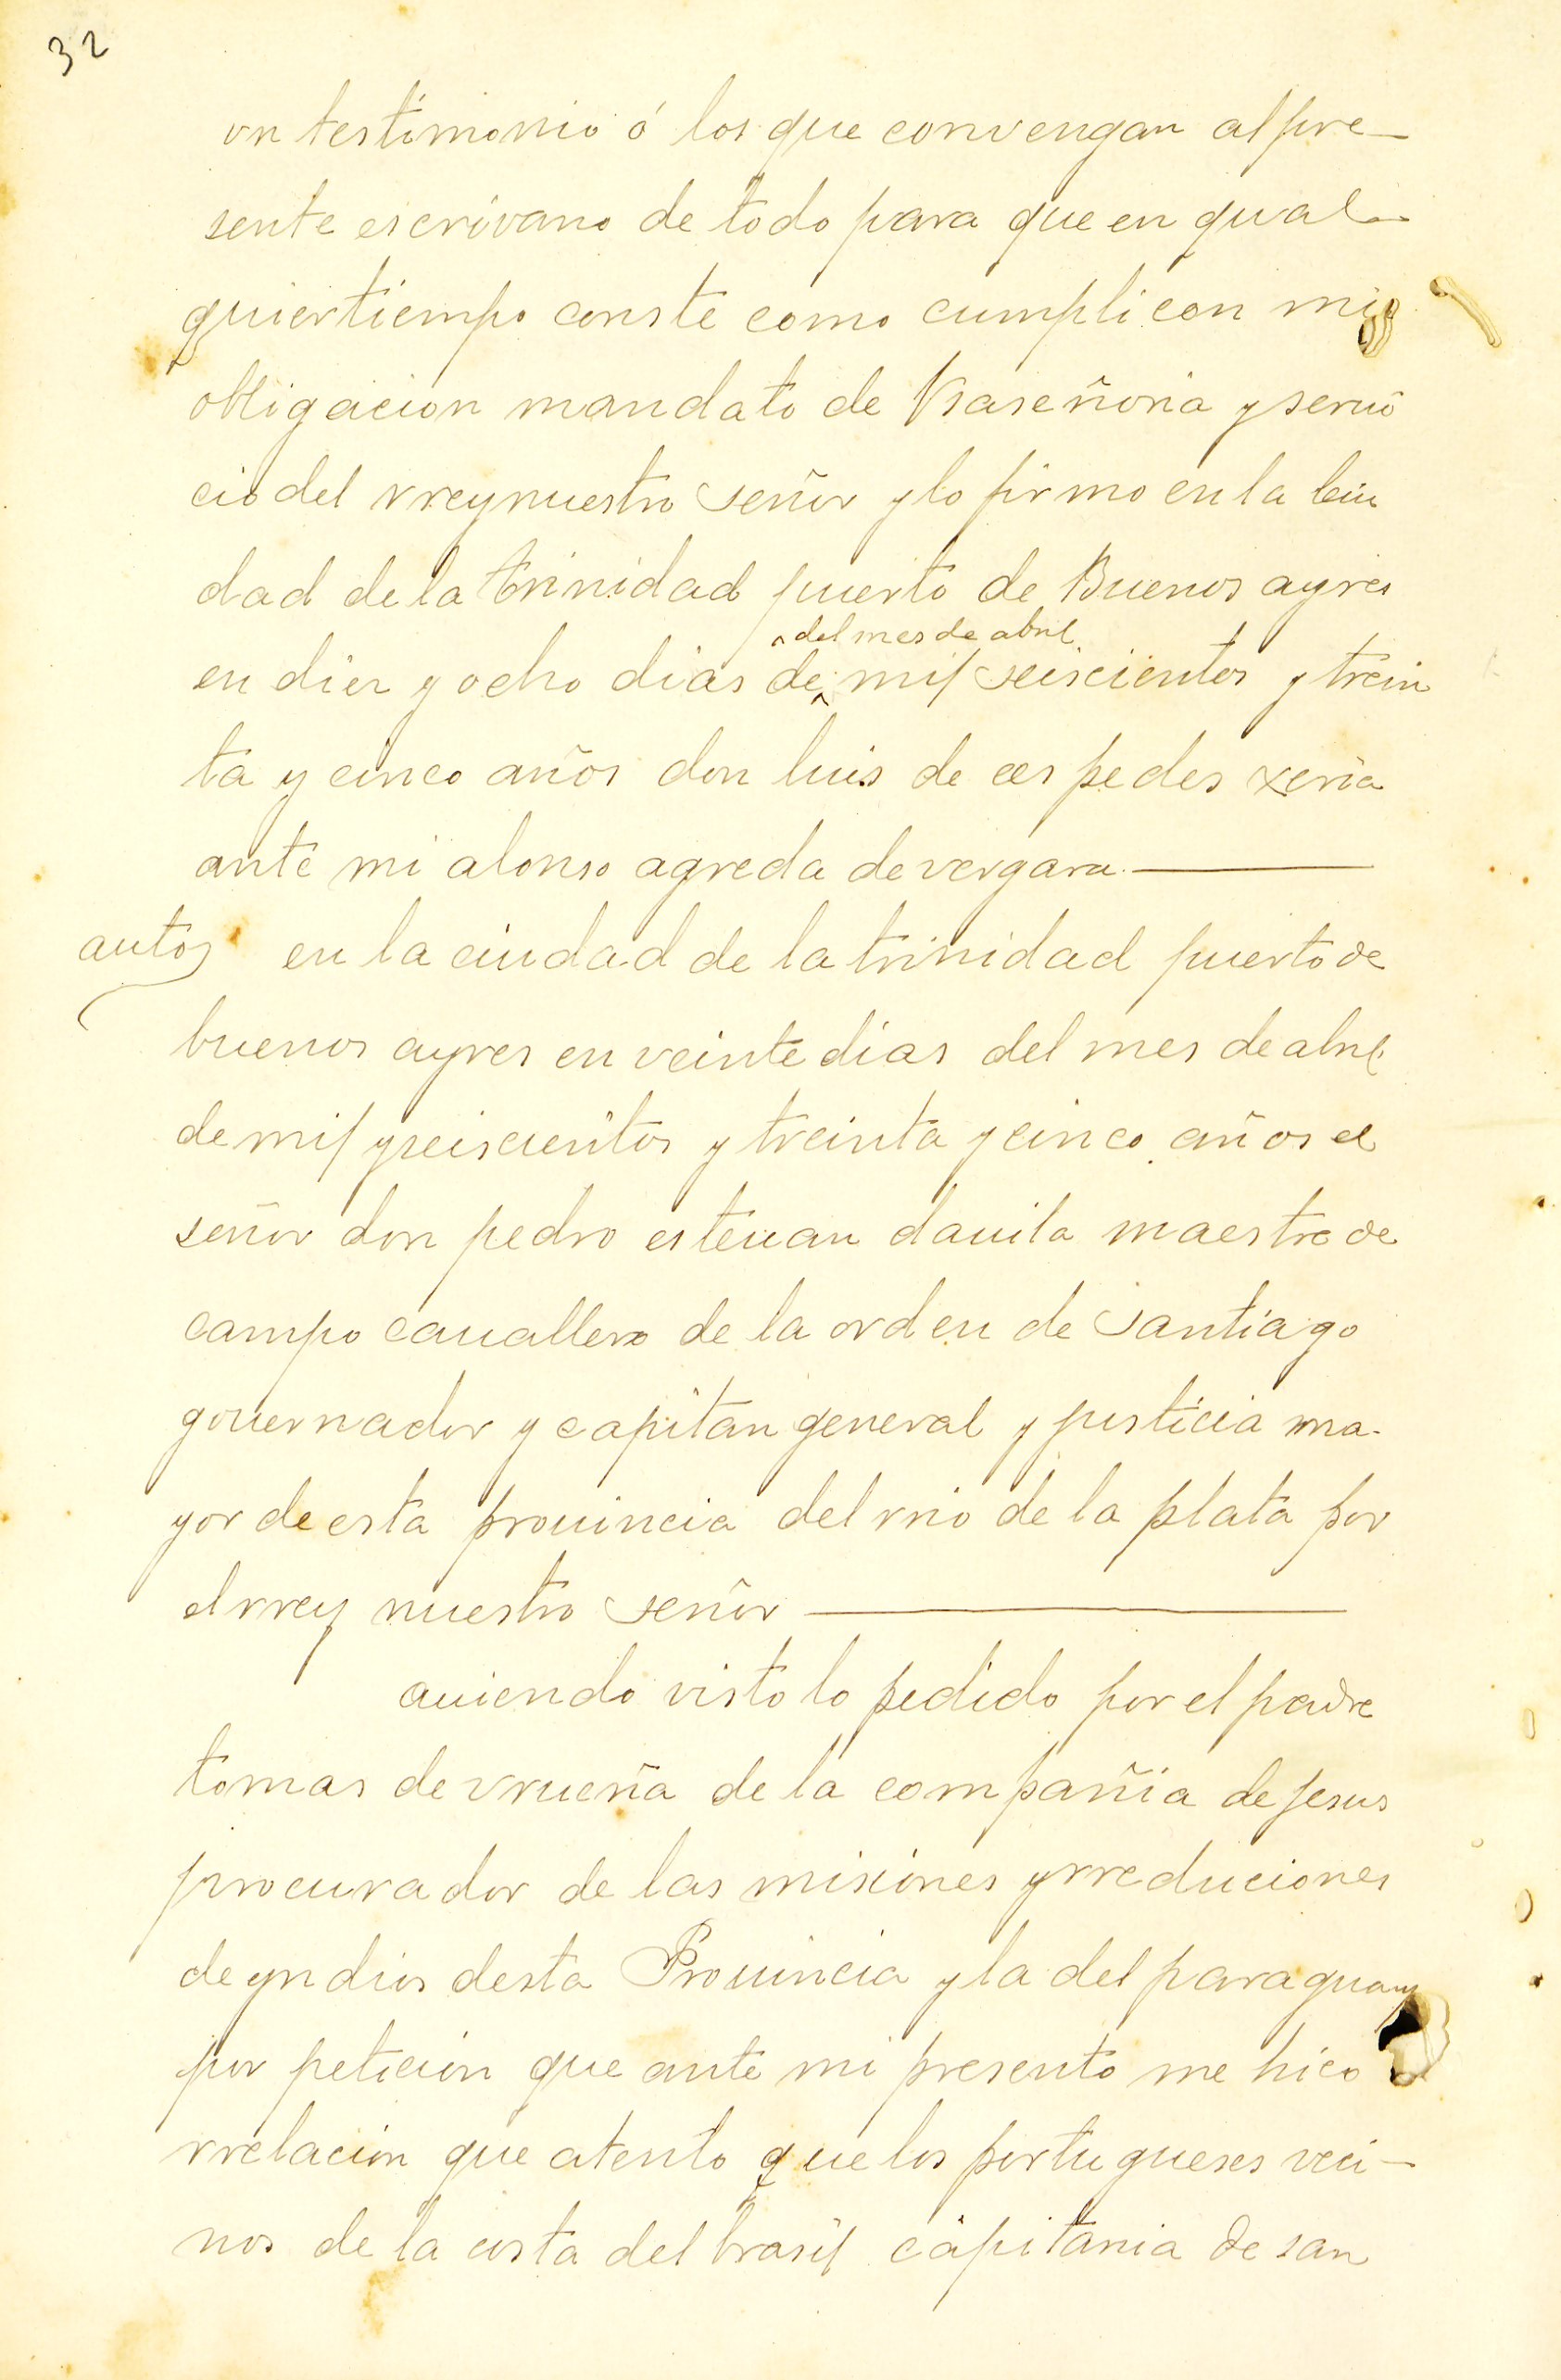 32
vn testimonio ó los que convengan al pre-
sente escrivano de todo para que en qual-
quier tiempo conste como cumpli con mi
obligacion mandato de Vsaseñoria y serui
cio del rrey nuestro señor y lo firmo en la ciu
dad de la trinidad puerto de Buenos ayres
del mes de abril
en diez y ocho dias de mil seiscientos y trein
ta y cinco años don luis de cespedes xeria
ante mi alonso agreda de vergara
autos en la ciudad de la trinidad puerto de
buenos ayres en veinte dias del mes de abril
de mil y seiscientos y treinta y cinco años el
señor don pedro esteuan dauila maestre de
campo cauallero de la orden de santiago
gouernador y capitan general y justicia ma-
yor de esta prouincia del rrio de la plata por
el rrey nuestro señor
auiendo visto lo pedido por el padre
tomas de vrueña de la compañia de jesus
procurador de las misiones y rreduciones
de yndios desta Prouincia y la del paraguay
por peticion que ante mi presento me hico
rrelacion que atento que los portugueses veci-
nos de la costa del brasil capitania de san